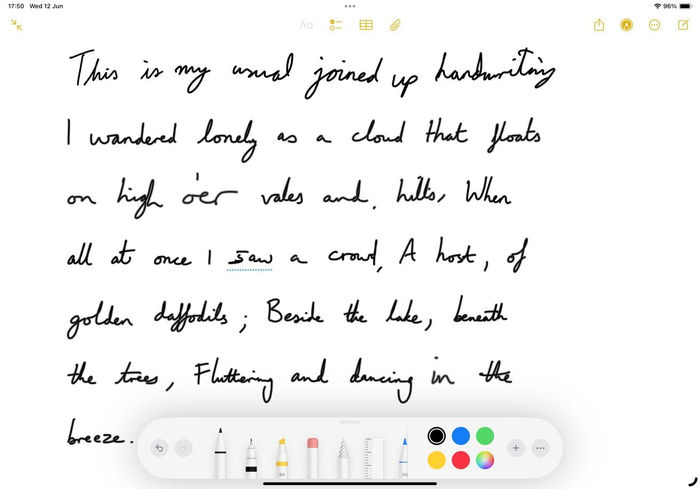 17:50 Wed 12 Jun
96%
Aa
This is my usual joined up handwriting
I wandered lonely as a cloud that floats
on high o'er vales and. hills, When
all at once I saw a crowd, A host, of
golden daffodils; Beside the lake, beneath
the trees, Fluttering and dancing in the
breeze.